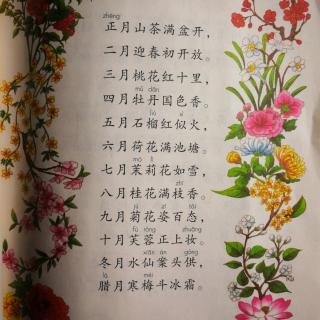 zhēng
正月山茶满盆开，
二月迎春初开放。
三月桃花红十里，
mǔ dān
四月牡丹国色香。
liú sì
五月石榴红似火，
六月荷花满池塘。
mò lì
七月茉莉花如雪，
zhī
八月桂花满枝香。
jú zī tài
九月菊花姿百态，
fú róng zhuāng
十月芙蓉正上妆。
xiān àn gòng
冬月水仙案头供，
là méi
腊月寒梅斗冰霜。